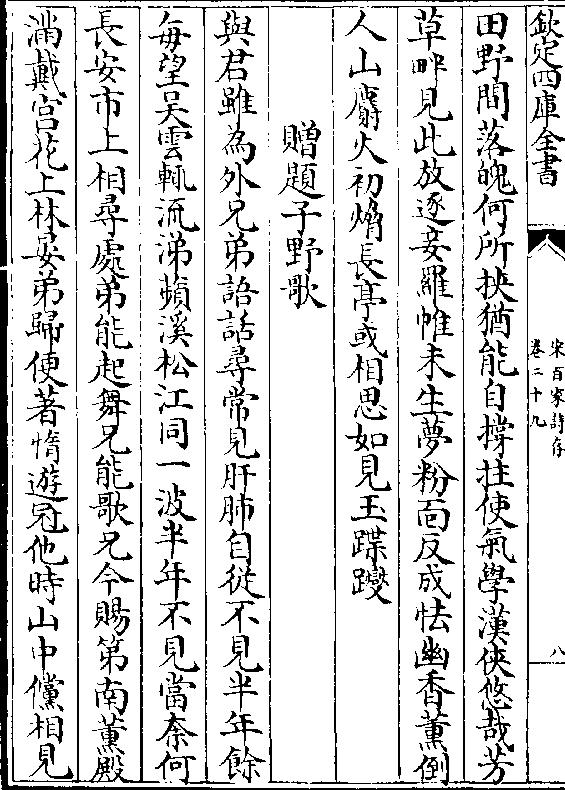 欽定四庫全書
宋百家詩存
卷二十九
八
田野間落魄何所挾猶能自撐拄使氣學漢俠悠哉芳
草畔見此放逐妾羅帷未生夢粉面反成怯幽香薰倒
人山麝火初爇長亭或相思如見玉蹀躞
贈題子野歌
與君雖為外兄弟語話尋常見肝肺自從不見半年餘
每望吳雲輒流涕蘋溪松江同一波半年不見當奈何
長安市上相尋處弟能起舞兄能歌兄今賜第南薰殿
滿戴宫花上林晏弟歸便著惰遊冠他時山中儻相見